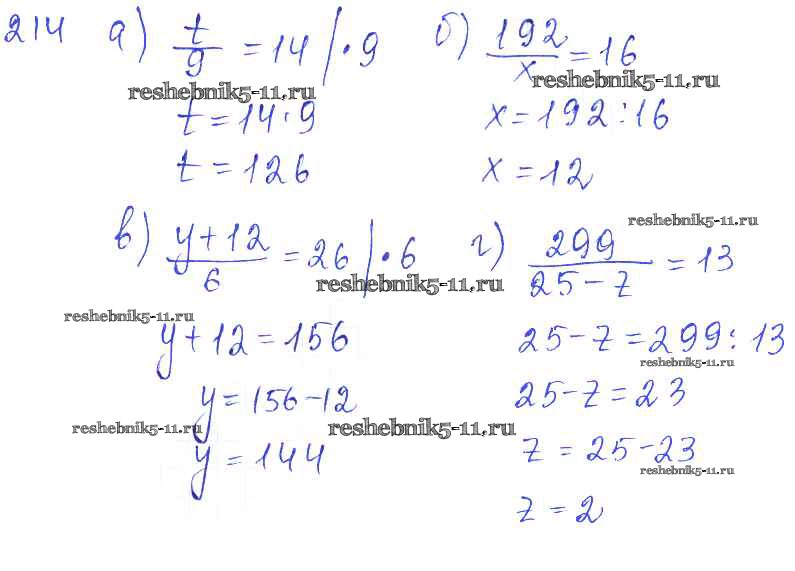 214 а) t/9 = 14 | · 9
reshebnik5-11.ru
t = 14 · 9
t = 126
б) 192/x = 16
reshebnik5-11.ru
x = 192 : 16
x = 12
в) y + 12/6 = 26 | · 6
reshebnik5-11.ru
reshebnik5-11.ru
y + 12 = 156
y = 156 - 12
reshebnik5-11.ru
reshebnik5-11.ru
y = 144
reshebnik5-11.ru
г) 299/25 - z = 13
25 - z = 299 : 13
reshebnik5-11.ru
25 - z = 23
z = 25 - 23
reshebnik5-11.ru
z = 2